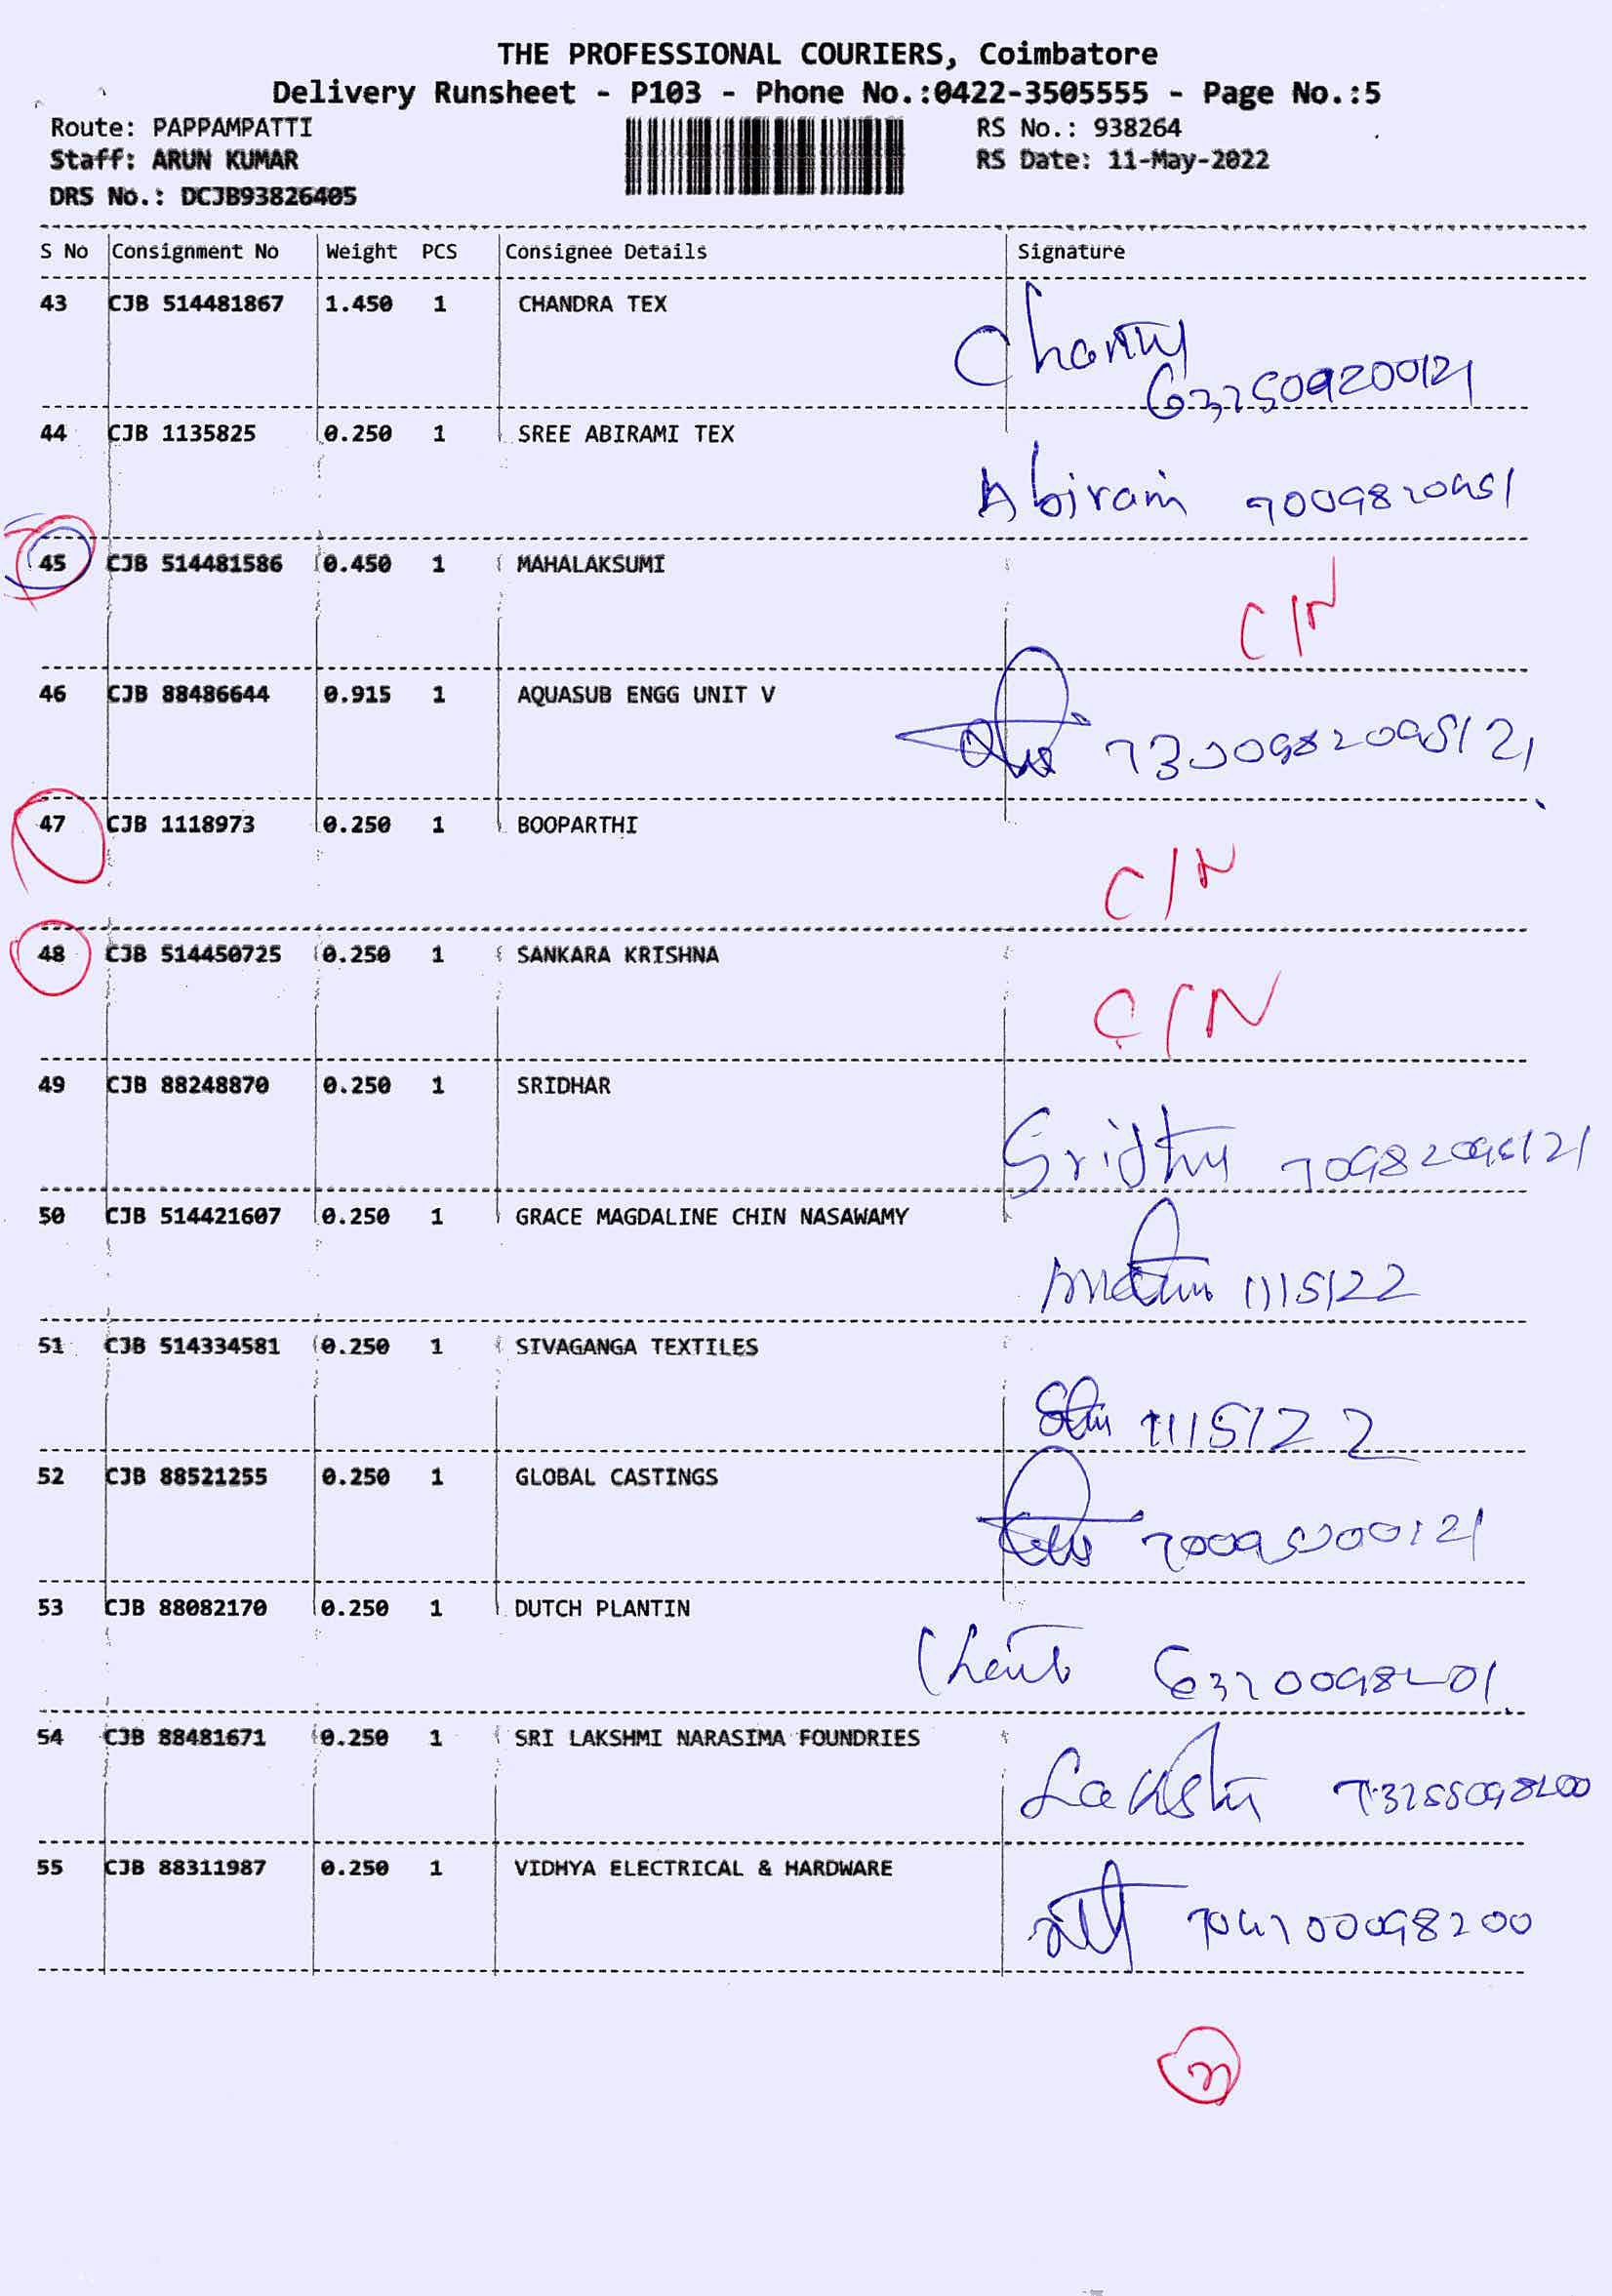 THE PROFESSIONAL COURIERS, Coimbatore
Delivery Runsheet - P103 - Phone No.:0422-3505555 - Page No.:5
Route: PAPPAMPATTI RS No.: 938264
Staff: ARUN KUMAR RS Date: 11-May-2022
DRS No.: DCJB93826405
S No Consignment No Weight PCS Consignee Details Signature
43 CJB 514481867 1.450 1 CHANDRA TEX
44 CJB 1135825 0.250 1 SREE ABIRAMI TEX
Abiram
45 CJB 514481586 0.450 1 MAHALAKSUMI
C/N
46 CJB 88486644 0.915 1 AQUASUB ENGG UNIT V
47 CJB 1118973 0.250 1 BOOPARTHI
C/N
48 CJB 514450725 0.250 1 SANKARA KRISHNA
C/N
49 CJB 88248870 0.250 1 SRIDHAR
50 CJB 514421607 0.250 1 GRACE MAGDALINE CHIN NASAWAMY
11/5/22
51 CJB 514334581 0.250 1 SIVAGANGA TEXTILES
11/5/22
52 CJB 88521255 0.250 1 GLOBAL CASTINGS
53 CJB 88082170 0.250 1 DUTCH PLANTIN
54 CJB 88481671 0.250 1 SRI LAKSHMI NARASIMA FOUNDRIES
55 CJB 88311987 0.250 1 VIDHYA ELECTRICAL & HARDWARE